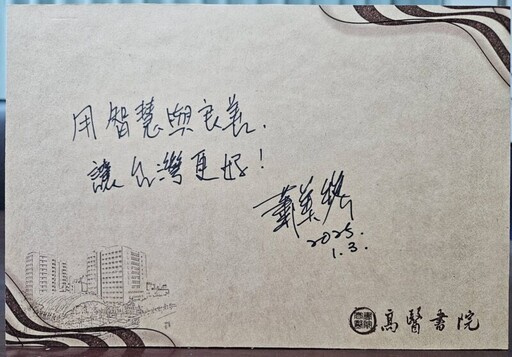 用智慧與良善，
讓台灣更好！
蕭美琴
2025.
1.3.
高醫書院